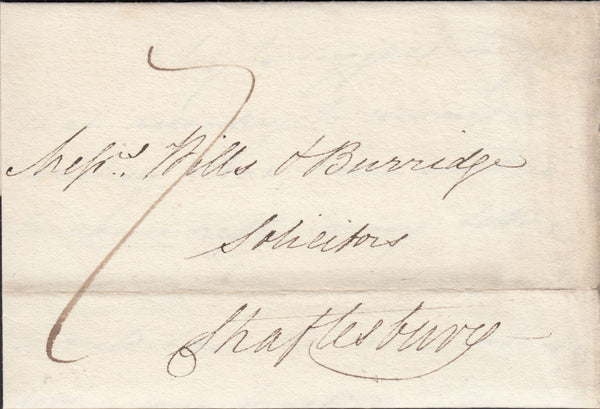 7
Messrs. Wills & Burridge
Solicitors
Shaftesbury